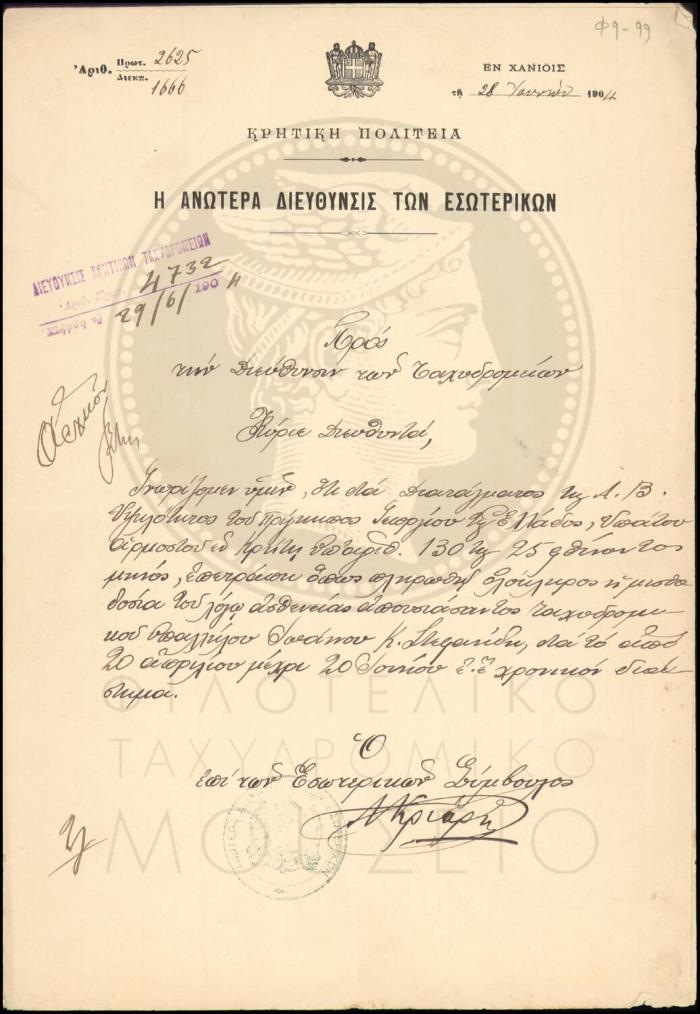 Φ9-99
Ἀριθ. Πρωτ. 2625
Διεκπ. 1666
ΕΝ ΧΑΝΙΟΙΣ
τῇ 28 Ἰουνίου 1904
ΚΡΗΤΙΚΗ ΠΟΛΙΤΕΙΑ
Η ΑΝΩΤΕΡΑ ΔΙΕΥΘΥΝΣΙΣ ΤΩΝ ΕΣΩΤΕΡΙΚΩΝ
ΔΙΕΥΘΥΝΣΙΣ ΚΡΗΤΙΚΩΝ ΤΑΧΥΔΡΟΜΕΙΩΝ
Ἀριθ. Πρωτ. 4732
29/6/1904
Πρός
τὴν Διεύθυνσιν τῶν Ταχυδρομείων
Κύριε Διευθυντά,
Γνωρίζομεν ὑμῖν, ὅτι διὰ Διατάγματος τῆς Α. Β.
Ὑψηλότητος τοῦ Πρίγκηπος Γεωργίου τῆς Ἑλλάδος, Ὑπάτου
Ἁρμοστοῦ ἐν Κρήτῃ ὑπ' ἀριθ. 130 τῆς 25 φθίνοντος
μηνός, ἐπετράπη ὅπως πληρωθῇ ὁλόκληρος ἡ μισθο
δοσία τοῦ λόγῳ ἀσθενείας ἀπουσιάσαντος ταχυδρομι
κοῦ ὑπαλλήλου Ἰωάννου Κ. Στεφανίδη, διὰ τὸ ἀπὸ
20 ἀπριλίου μέχρι 20 Ἰουνίου ἐ.ἔ. χρονικὸν διάσ
τημα.
Ὁ
ἐπὶ τῶν Ἐσωτερικῶν Σύμβουλος
ΦΙΛΟΤΕΛΙΚΟ
ΤΑΧΥΔΡΟΜΙΚΟ
ΜΟΥΣΕΙΟ